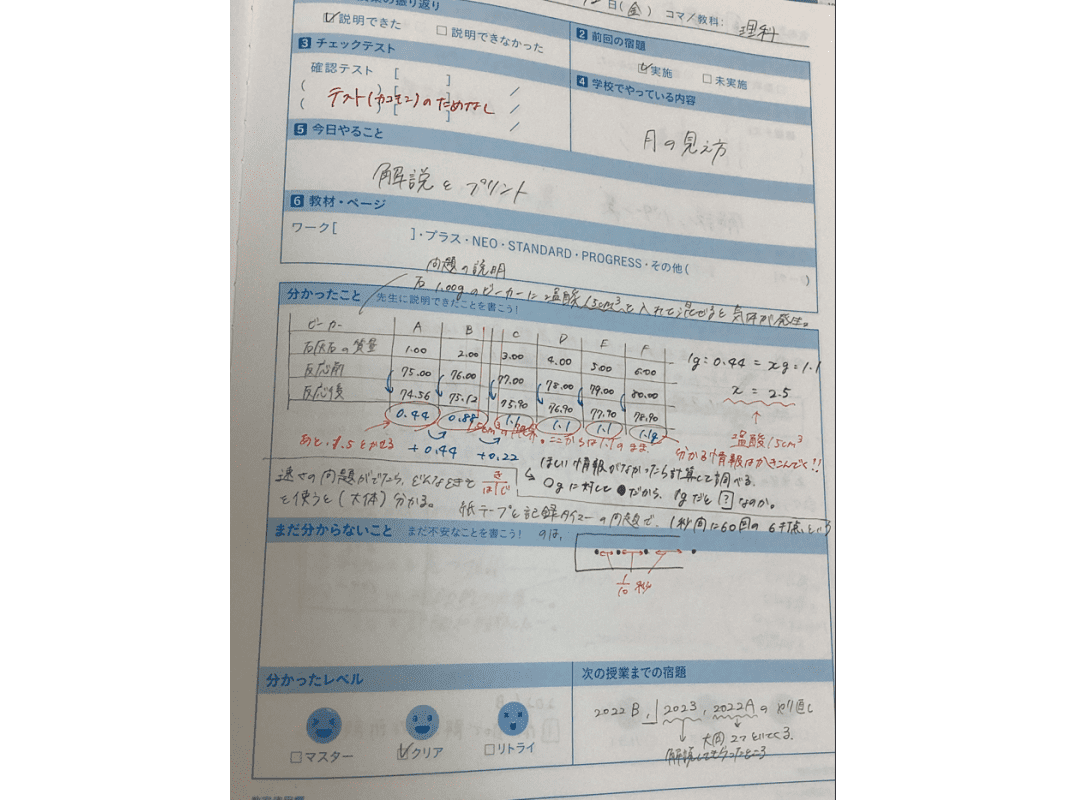 日(金) コマ/教科: 理科
の振り返り
☑説明できた □説明できなかった
2 前回の宿題
☑実施 □未実施
3 チェックテスト
確認テスト [ ]
( テスト( )のためなし
4 学校でやっている内容
月の見え方
5 今日やること
解説とプリント
6 教材・ページ
ワーク[ ]・プラス・NEO・STANDARD・PROGRESS・その他( )
問題の説明
石1.00gのビーカーに塩酸15cm³を入れて混ぜると気体が発生。
分かったこと 先生に説明できたことを書こう!
ビーカー A B C D E F
石灰石の質量 1.00 2.00 3.00 4.00 5.00 6.00
反応前 75.00 76.00 77.00 78.00 79.00 80.00
反応後 74.56 75.12 75.90 76.90 77.90 78.90
0.44 0.88 1.1 1.1 1.1 1.1g
1g:0.44=xg:1.1
x=2.5
塩酸15cm³
あと、1.5とかせる
+0.44 +0.22
ここからは1.1のまま
分かる情報はかきこんでく!!
ほしい情報がなかったら計算して調べる。
○gに対して●だから、1gだと?なのか。
速さの問題がでたら、どんなときで き はじ
を使うと(大体)分かる。
紙テープと記録タイマーの問題で、1秒間に60回の6打点という
のは、
まだ分からないこと まだ不安なことを書こう!
1/10秒
分かったレベル
□マスター ☑クリア □リトライ
次の授業までの宿題
2022B、2023、2022Aのやり直し
大問2つといてくる。
解説してもらったところ